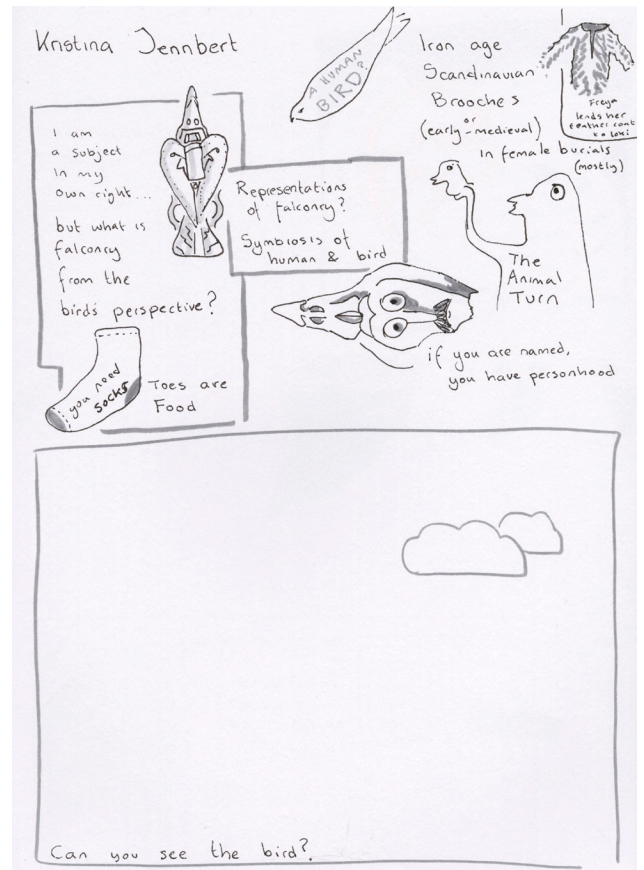 Kristina Jennbert
A HUMAN
BIRD?
Iron age
Scandinavian
Brooches
or
(early-medieval)
in female burials
(mostly)
Freya
lends her
feather coat
to Loki
I am
a subject
in my
own right...
but what is
falconry
from the
birds perspective?
Representations
of falconry?
Symbiosis of
human & bird
The
Animal
Turn
if you are named,
you have personhood
you need
socks
Toes are
Food
Can you see the bird?